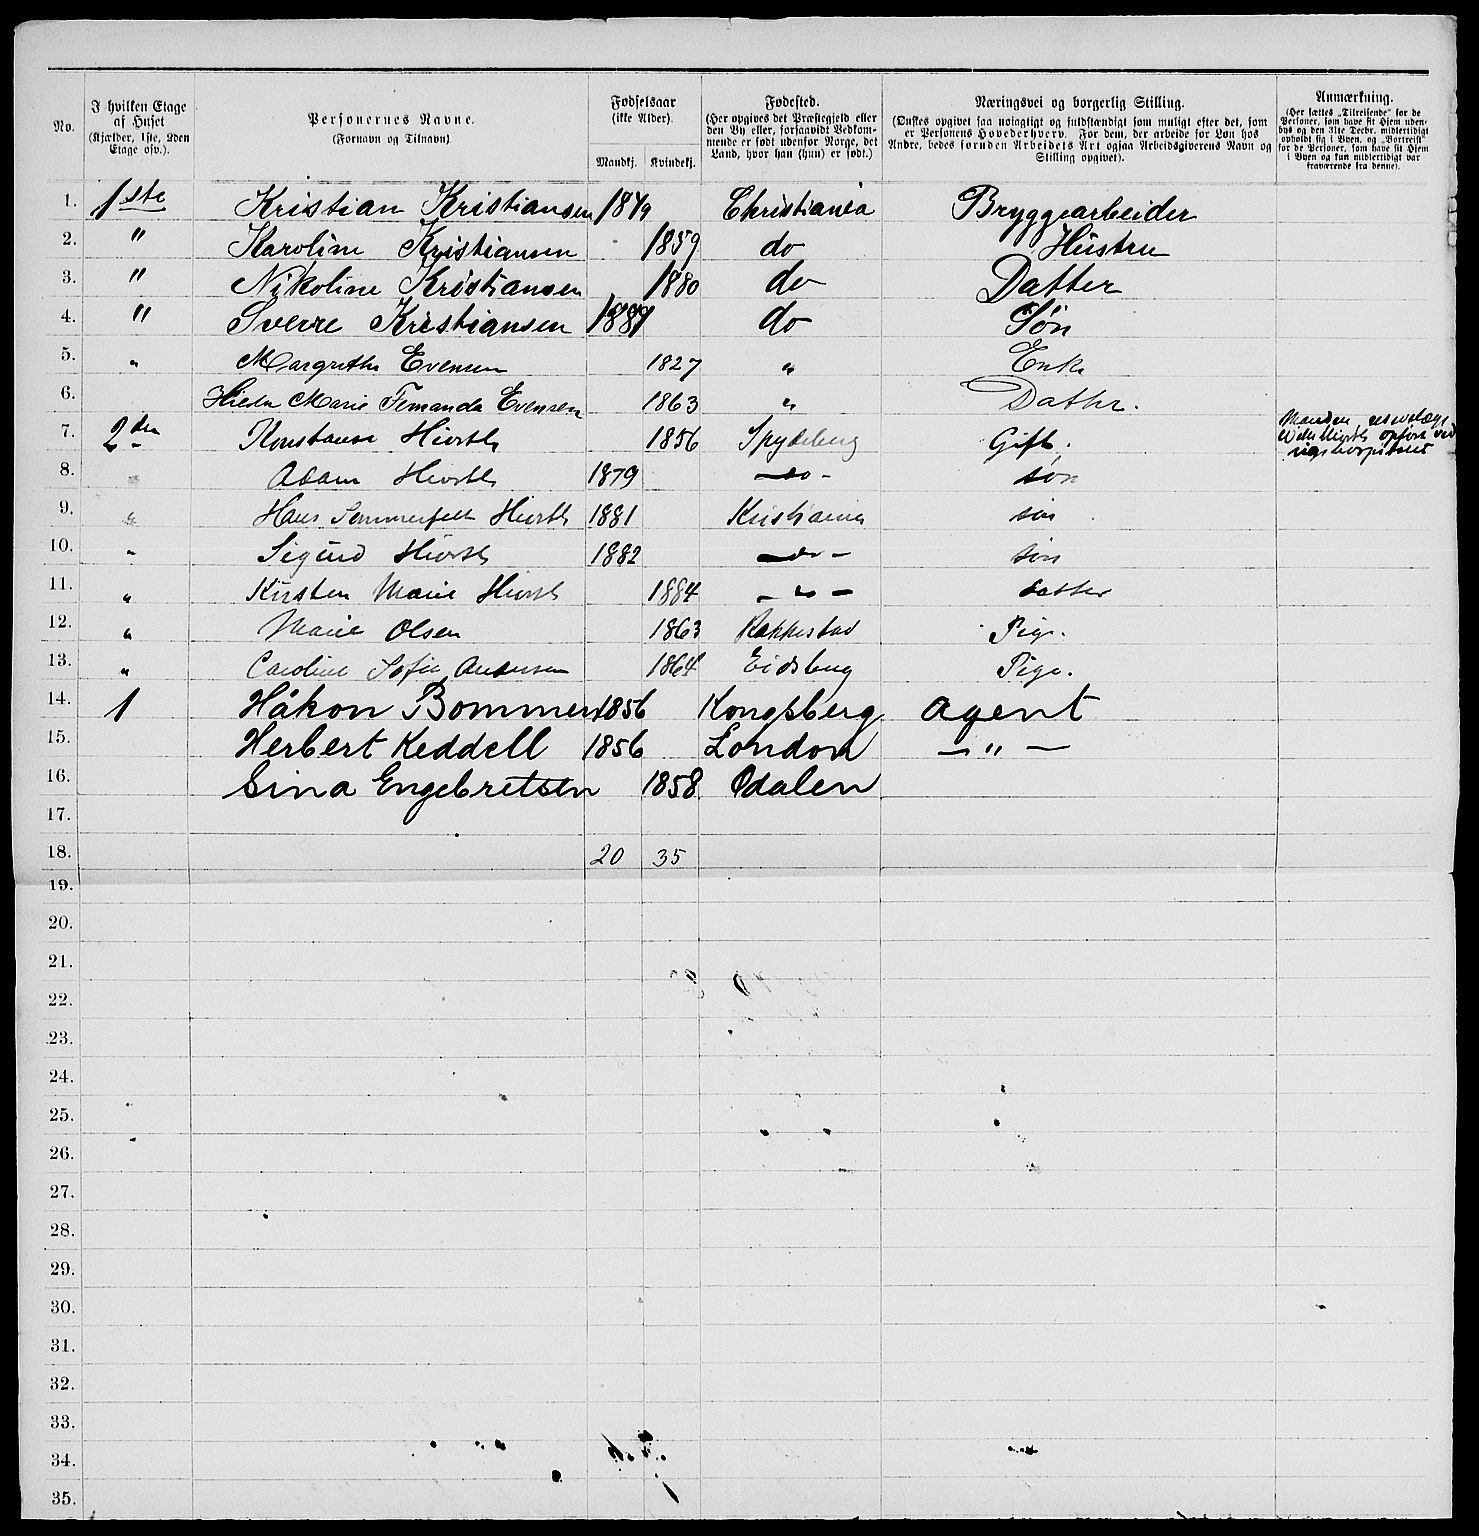 No.
I hvilken Etage af Huset (Kjælder, 1ste, 2den Etage osv.).
Personernes Navne. (Fornavn og Tilnavn)
Fødselsaar (ikke Alder).
Mandkj. Kvindekj.
Fødested. (Her opgives det Præstegjeld eller den By eller, forsaavidt Vedkommende er født udenfor Norge, det Land, hvor han (hun) er født.)
Næringsvei og borgerlig Stilling. (Ønskes opgivet saa nøiagtigt og fuldstændigt som muligt efter det, som er Personens Hovederhverv. For dem, der arbeide for Løn hos Andre, bedes foruden Arbeidets Art ogsaa Arbeidsgiverens Navn og Stilling opgivet).
Anmærkning. (Her sættes „Tilreisende" for de Personer, som have sit Hjem udenbys og den 31te Decbr. midlertidigt opholdt sig i Byen, og „Bortreist" for de Personer, som have sit Hjem i Byen og kun midlertidigt var fraværende fra denne).
1. 1ste Kristian Kristiansen 1849 Christiania Bryggearbeider
2. " Karoline Kristiansen 1859 do Hustru
3. " Nikoline Kristiansen 1880 do Datter
4. " Sverre Kristiansen do Søn
5. " Margrethe Evensen 1827 " Enke
6. Marie Fernanda Evensen 1863 " Datter.
7. 2den Konstance Hiorth 1856 Spydeberg Gift. Manden, opført ved rigshospitalet
8. " Adam Hiorth 1879 - do - søn
9. " Hans Sommerfelt Hiorth 1881 Kristiania søn
10. " Sigurd Hiorth 1882 - do - søn
11. " Kirsten Marie Hiorth 1884 - " - datter
12. " Marie Olsen 1863 Rakkestad Pige.
13. " Caroline Sofie Andersen 1864 Eidsberg Pige.
14. 1 Håkon Bommen 1856 Kongsberg Agent
15. Herbert Keddell 1856 London - " -
16. Sina Engebretsen 1858 Odalen
17.
18. 20 35
19.
20.
21.
22.
23.
24.
25.
26.
27.
28.
29.
30.
31.
32.
33.
34.
35.